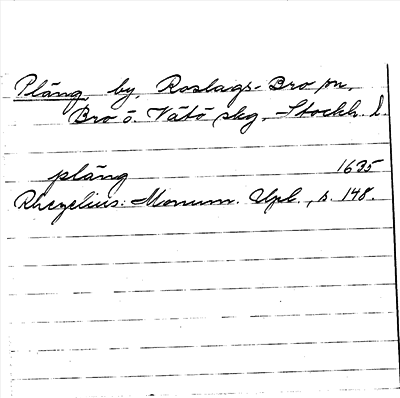 Pläng by, Roslags-Bro sn,
Bro o. Vätö skg, Stockh. l.
pläng 1635
Rhezelius: Monum. Upl., s. 148.